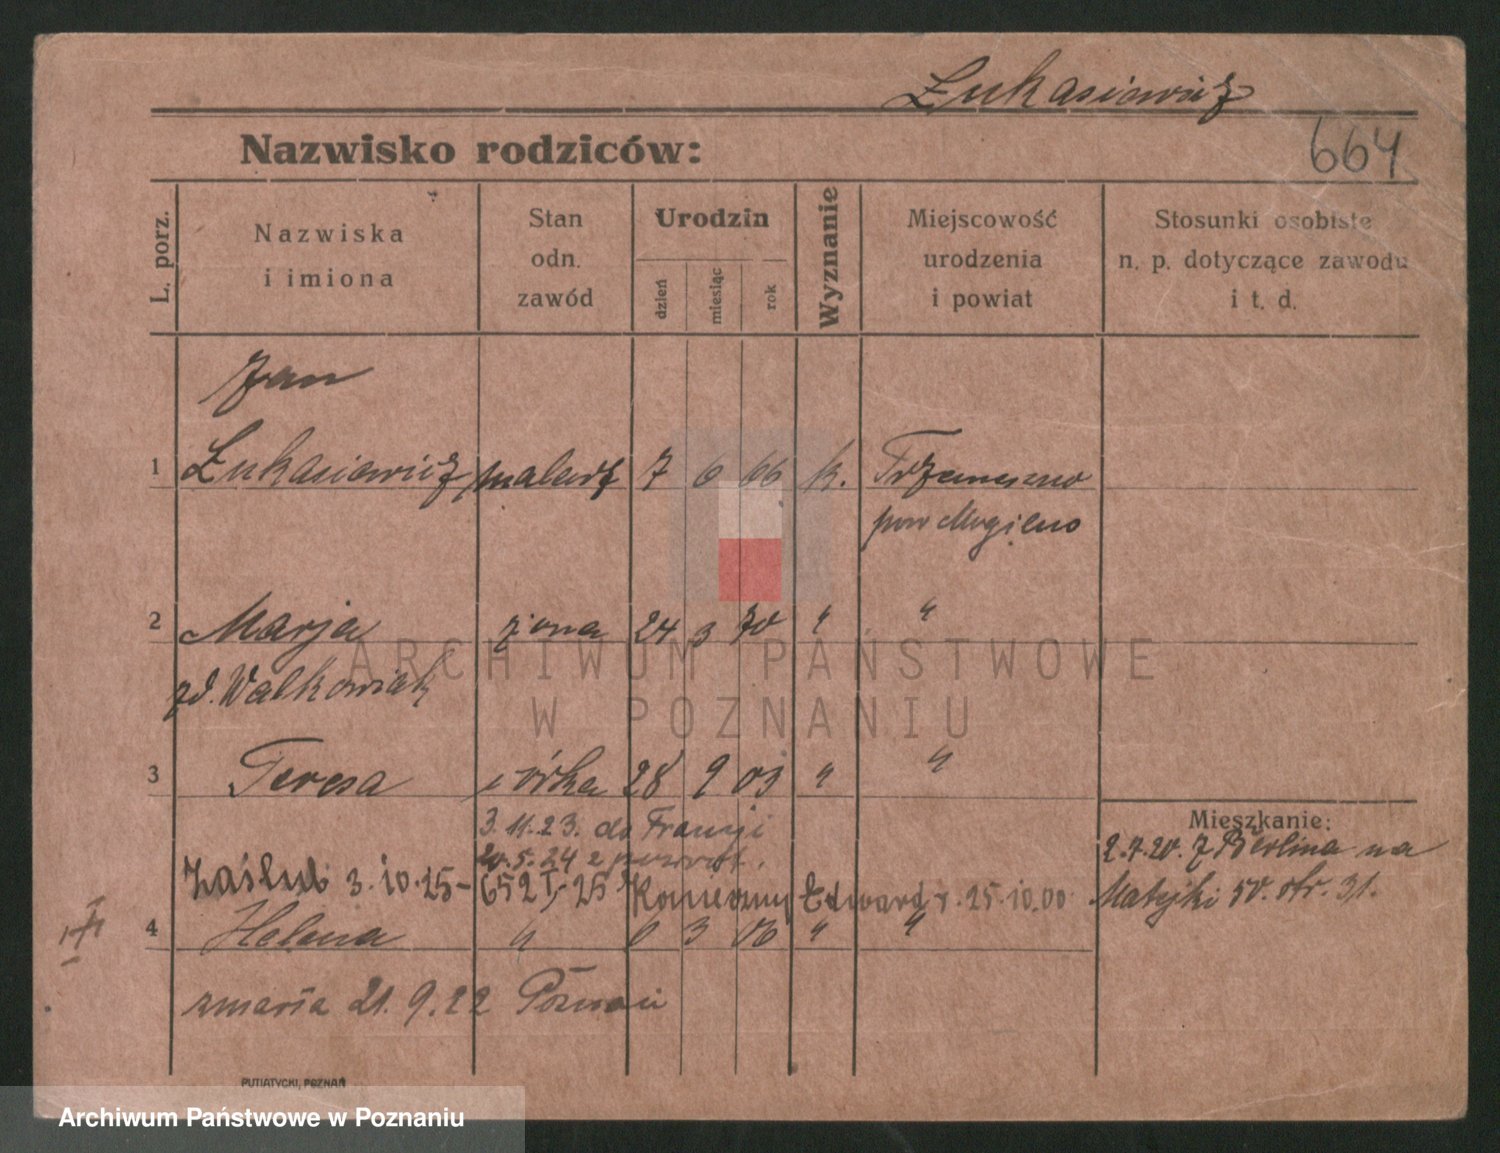 Łukasiewicz
664
Nazwisko rodziców:
L. porz.
Nazwiska i imiona
Stan odn. zawód
Urodzin
dzień
miesiąc
rok
Wyznanie
Miejscowość urodzenia i powiat
Stosunki osobiste n. p. dotyczące zawodu i t. d.
Jan
1 Łukasiewicz malarz 7 6 66 k. Trzemeszno
pow Mogilno
2 Marja żona 24 3 70 " "
zd. Walkowiak
3 Teresa córka 28 9 03 " "
3.11.23. do Francji
20.5.24 z powrot.
Zaślub 3.10.25 - 652 I/25 Konieczny Edward r. 25.10.00
4 Helena " 6 3 06 " "
zmarła 21.9.22 Poznań
Mieszkanie:
2.7.20. z Berlina na
Matejki 50. str. 31.
PUTIATYCKI, POZNAŃ
ARCHIWUM PAŃSTWOWE
W POZNANIU
Archiwum Państwowe w Poznaniu